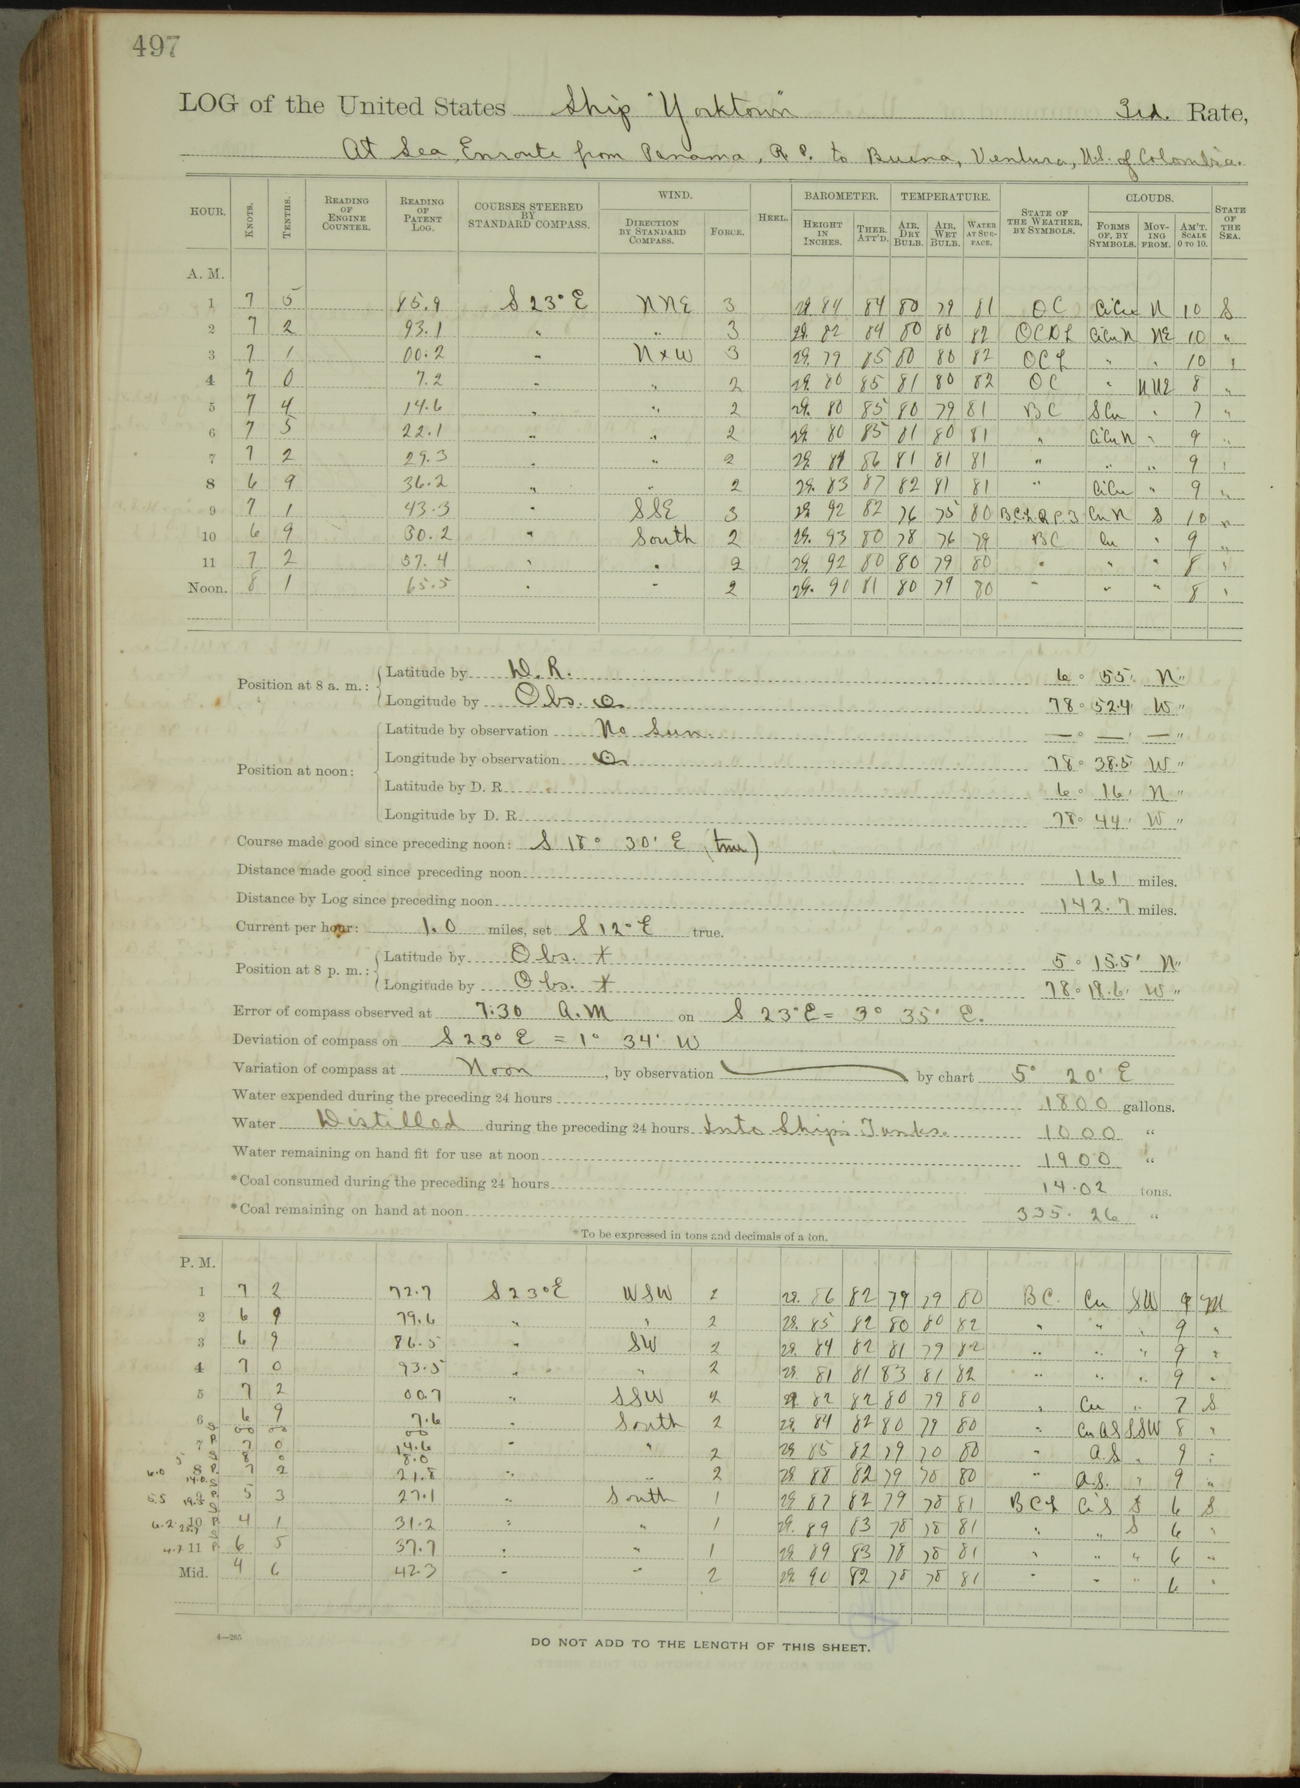 497
LOG of the United States Ship "Yorktown" 3rd. Rate,
At Sea Enroute from Panama, R.P. to Buena, Ventura, U.S. of Colombia.
HOUR. KNOTS. TENTHS. READING OF ENGINE COUNTER. READING OF PATENT LOG. COURSES STEERED BY STANDARD COMPASS. WIND. DIRECTION BY STANDARD COMPASS. FORCE. HEEL. BAROMETER. HEIGHT IN INCHES. THER. ATT'D. TEMPERATURE. AIR, DRY BULB. AIR, WET BULB. WATER AT SURFACE. STATE OF THE WEATHER, BY SYMBOLS. CLOUDS. FORMS OF, BY SYMBOLS. MOVING FROM. AM'T. SCALE 0 TO 10. STATE OF THE SEA.
A. M.
1 7 5 85.9 S 23° E NNE 3 29 84 84 80 79 81 OC CiCu N 10 S
2 7 2 93.1 " " 3 29. 82 84 80 80 82 OCDL CiCuN NE 10 "
3 7 1 00.2 " N x W 3 29. 79 85 80 80 82 OCL " " 10 "
4 7 0 7.2 " " 2 29. 80 85 81 80 82 OC " NNE 8 "
5 7 4 14.6 " " 2 29. 80 85 80 79 81 BC SCu " 7 "
6 7 5 22.1 " " 2 29 80 85 81 80 81 " CiCuN " 9 "
7 7 2 29.3 " " 2 29. 81 86 81 81 81 " " " 9 "
8 6 9 36.2 " " 2 29. 83 87 82 81 81 " CiCu " 9 "
9 7 1 43.3 " SSE 3 29 92 82 76 75 80 CuN S 10 "
10 6 9 50.2 " South 2 29. 93 80 78 76 79 BC Cu " 9 "
11 7 2 57.4 " " 2 29. 92 80 80 79 80 " " " 8 "
Noon. 8 1 65.5 " " 2 29. 90 81 80 79 80 " " " 8 "
Position at 8 a. m.: Latitude by D. R. 6° 55' N"
Longitude by Obs. 78° 52.4' W"
Position at noon: Latitude by observation No Sun. —° —' —"
Longitude by observation 78° 38.5' W"
Latitude by D. R. 6° 16' N"
Longitude by D. R. 78° 44' W"
Course made good since preceding noon: S 18° 30' E (true)
Distance made good since preceding noon 161 miles.
Distance by Log since preceding noon 142.7 miles.
Current per hour: 1.0 miles, set S 12° E true.
Position at 8 p. m.: Latitude by Obs. * 5° 15.5' N"
Longitude by Obs. * 78° 18.6' W"
Error of compass observed at 7:30 A.M on S 23° E = 3° 35' E.
Deviation of compass on S 23° E = 1° 34' W
Variation of compass at Noon, by observation by chart 5° 20' E
Water expended during the preceding 24 hours 1800 gallons.
Water Distilled during the preceding 24 hours Into Ship's Tanks. 1000 "
Water remaining on hand fit for use at noon 1900 "
*Coal consumed during the preceding 24 hours 14.02 tons.
*Coal remaining on hand at noon 335.26 "
*To be expressed in tons and decimals of a ton.
P. M.
1 7 2 72.7 S 23° E WSW 2 29. 86 82 79 79 80 BC. Cu SW 9 M
2 6 9 79.6 " " 2 29. 85 82 80 80 82 " " " 9 "
3 6 9 86.5 " SW 2 29. 84 82 81 79 82 " " " 9 "
4 7 0 93.5 " " 2 29. 81 81 83 81 82 " " " 9 "
5 7 2 00.7 " SSW 2 29 82 82 80 79 80 " Cu " 7 S
6 6 9 7.6 " South 2 29. 84 82 80 79 80 " CuAS SSW 8 "
7 7 0 14.6 " " 2 29 85 82 79 80 " A.S. " 9 "
8 7 2 21.8 " " 2 29 88 82 79 78 80 " A.S. " 9 "
9 5 3 27.1 " South 1 29 87 82 79 78 81 BCL CiS S 6 S
10 4 1 31.2 " " 1 29. 89 83 78 78 81 " " S 6 "
11 6 5 37.7 " " 1 29 89 83 78 78 81 " " " 6 "
Mid. 4 6 42.3 " " 2 29 90 82 78 78 81 " " " 6 "
4—265
DO NOT ADD TO THE LENGTH OF THIS SHEET.